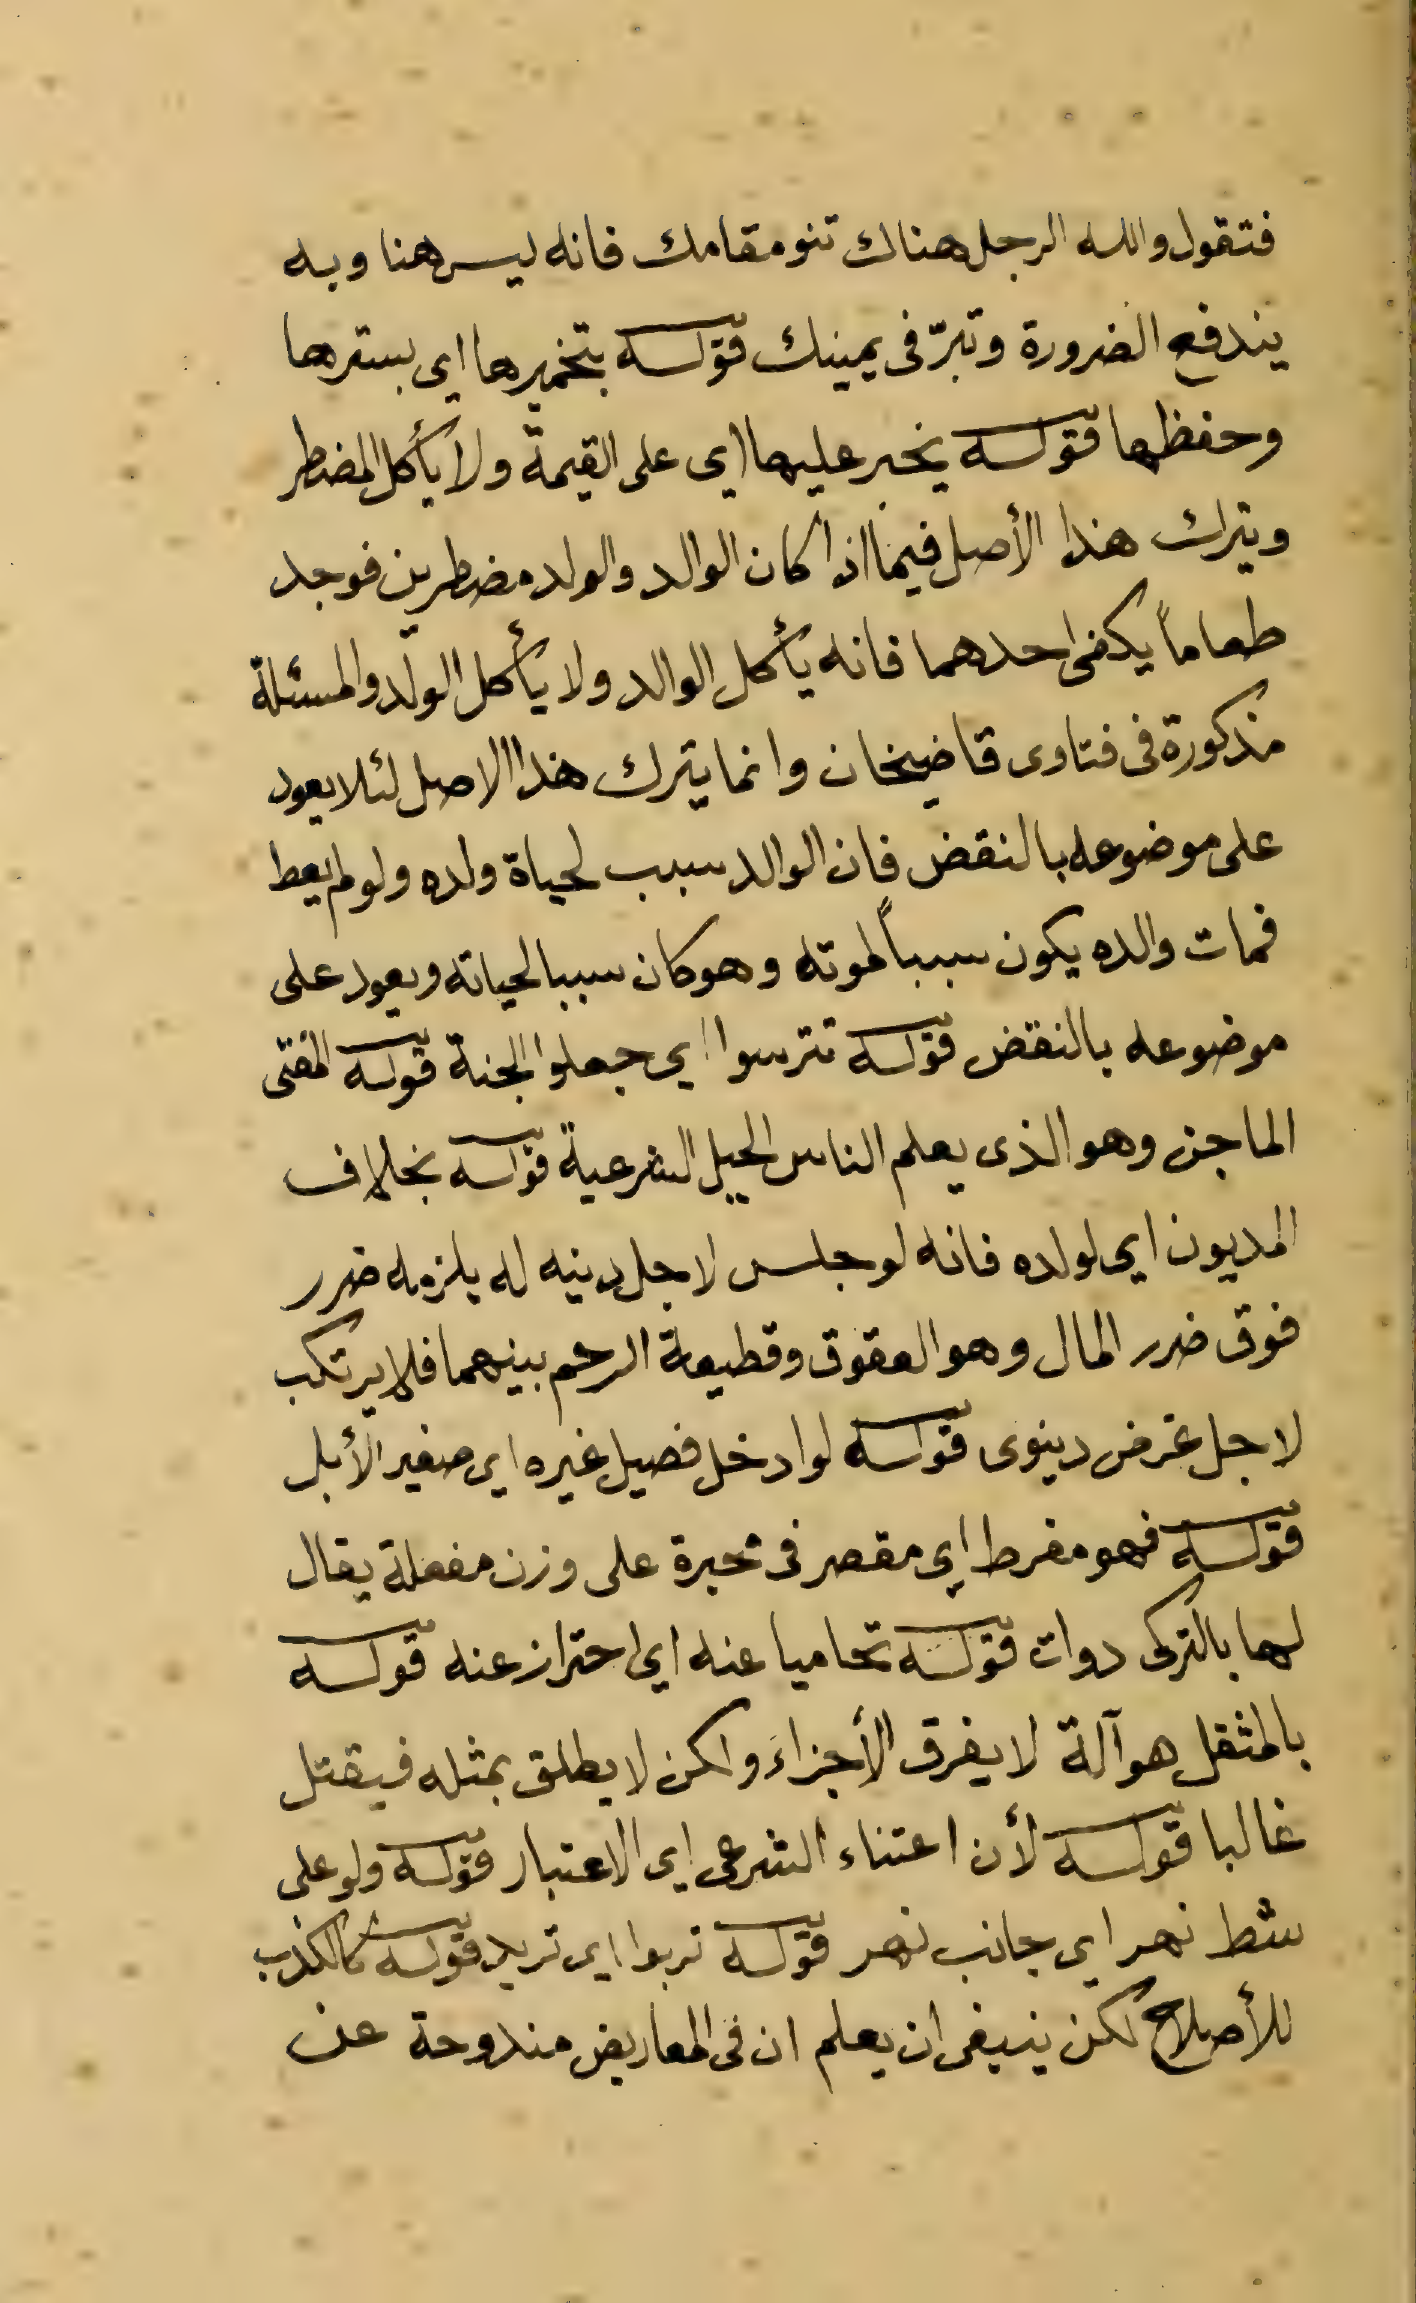 فتقول والله الرجل هناك تنو مقامك فانه ليس هنا وبه
يندفع الضرورة وتبرّ فى يمينك قوله بتخميرها اى بسترها
وحفظها قوله يخبر عليها اى على القيمة ولا يأكل المضطر
ويترك هذا الأصل فيما اذا كان الوالد والولد مضطرين فوجد
طعاماً يكفى احدهما فانه يأكل الوالد ولا يأكل الولد والمسئلة
مذكورة فى فتاوى قاضيخان وانما يترك هذا الاصل لئلا يعود
على موضوعه بالنقض فان الوالد سبب لحياة ولده ولو لم يعط
فمات والده يكون سبباً لموته وهو كان سببا لحياته ويعود على
موضوعه بالنقض قوله تترسوا اى جعلوا الجنة قوله المفتى
الماجن وهو الذى يعلم الناس الحيل الشرعية قوله بخلاف
المديون اى لولده فانه لو جلس لاجل دينه له يلزمه ضرر
فوق ضرر المال وهو العقوق وقطيعة الرحم بينهما فلا يرتكب
لاجل غرض دينوى قوله لو ادخل فصيل غيره اى صغير الأبل
قوله فهو مفرط اى مقصر فى محبرة على وزن مفعلة يقال
لها بالتركى دوات قوله تحاميا عنه اى احتراز عنه قوله
بالمثقل هو آلة لا يفرق الأجزاء ولكن لا يطلق بمثله فيقتل
غالبا قوله لأن اعتناء الشرعى اى الاعتبار قوله ولو على
شط نهر اى جانب نهر قوله تربوا اى تريد قوله كالكذب
للأصلاح لكن ينبغى ان يعلم ان فى المعاريض مندوحة عن